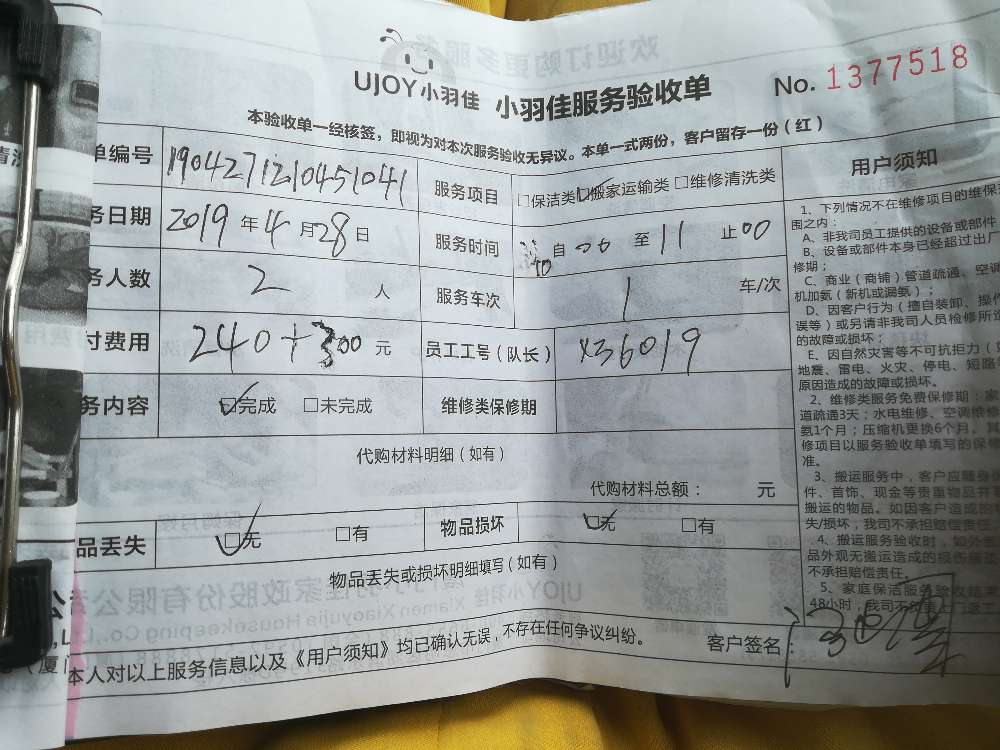 UJOY小羽佳 小羽佳服务验收单 No. 1377518
本验收单一经核签，即视为对本次服务验收无异议。本单一式两份，客户留存一份（红）
单编号 1904271210451041 服务项目 □保洁类☑搬家运输类□维修清洗类
务日期 2019年4月28日 服务时间 自 至 11 止00
务人数 2 人 服务车次 1 车/次
付费用 240+300元 员工工号（队长） X36019
务内容 ☑完成 □未完成 维修类保修期
代购材料明细（如有）
代购材料总额： 元
品丢失 ☑无 □有 物品损坏 ☑无 □有
物品丢失或损坏明细填写（如有）
本人对以上服务信息以及《用户须知》均已确认无误，不存在任何争议纠纷。 客户签名：
用户须知
1、下列情况不在维修项目的维保
围之内：
A、非我司员工提供的设备或部件
B、设备或部件本身已经超过出厂
修期；
C、商业（商铺）管道疏通、空调
机加氨（新机或漏氨）；
D、因客户行为（擅自装卸、操作
误等）或另请非我司人员检修所造
的故障或损坏；
E、因自然灾害等不可抗拒力（
地震、雷电、火灾、停电、短路
原因造成的故障或损坏。
2、维修类服务免费保修期：家
道疏通3天；水电维修、空调维修
氨1个月；压缩机更换6个月。其
修项目以服务验收单填写的保修
准。
3、搬运服务中，客户应随身
件、首饰、现金等贵重物品并
搬运的物品。如因客户造成的
失/损坏，我司不承担赔偿责
4、搬运服务验收时，如外
品外观无搬运造成的损伤
不承担赔偿责任。
5、家庭保洁服务验收结束
48小时，我司不